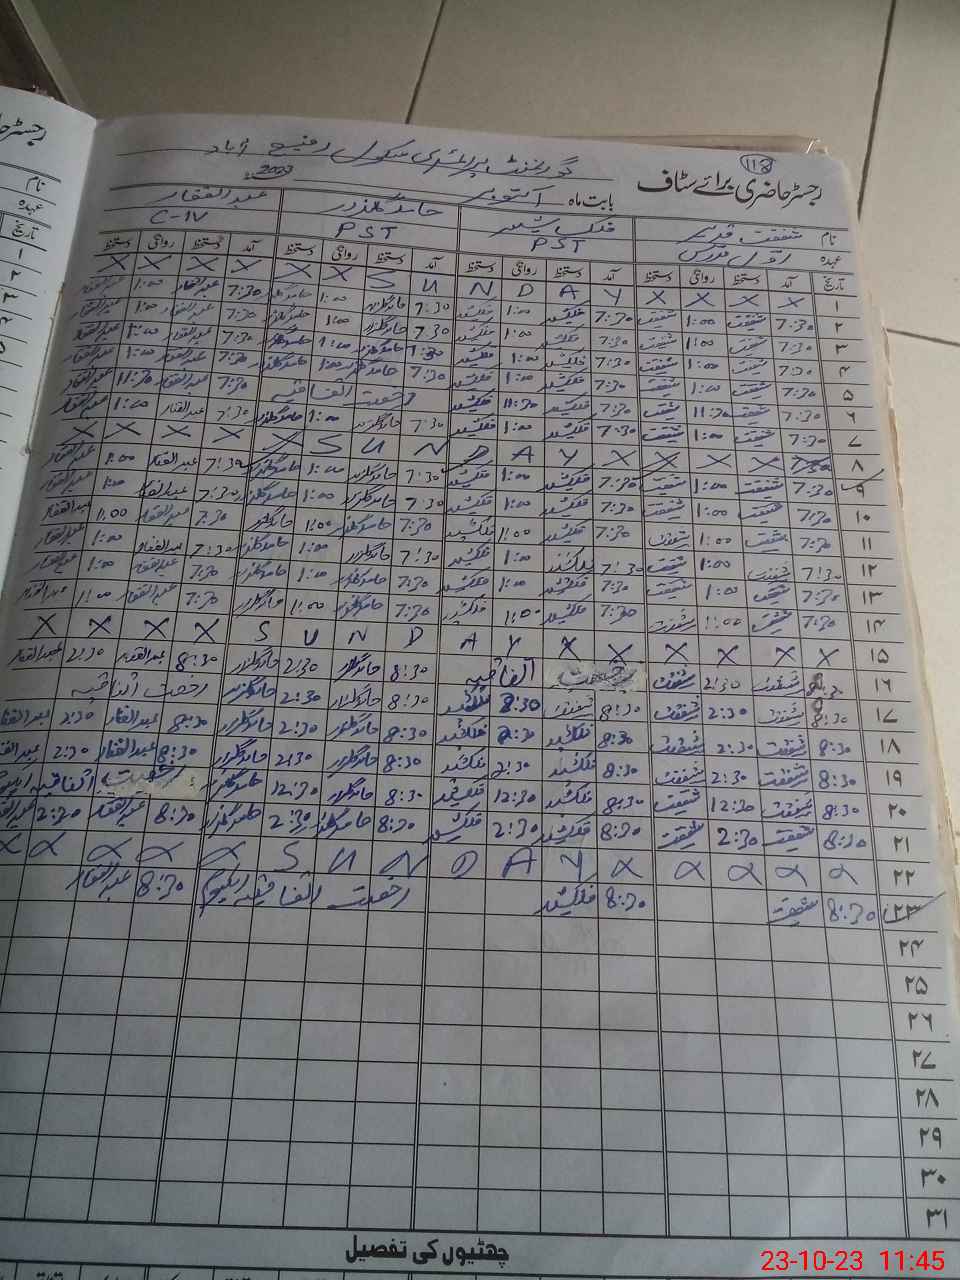 118
رجسٹر حاضری برائے سٹاف
گورنمنٹ پرائمری سکول رفیع آباد
بابت ماہ اکتوبر 2023
نام شفقت قدیر فلک شیر حامد گلزار عبدالغفار
عہدہ اول مدرس PST PST C-IV
تاریخ آمد دستخط روانگی دستخط آمد دستخط روانگی دستخط آمد دستخط روانگی دستخط آمد دستخط روانگی دستخط
۱ X X X X S U N D A Y X X X X X
۲ 7:30 شفقت 1:00 شفقت 7:30 فلک شیر 1:00 فلک شیر 7:30 حامد گلزار 1:00 حامد گلزار 7:30 عبدالغفار 1:00 عبدالغفار
۳ 7:30 شفقت 1:00 شفقت 7:30 فلک شیر 1:00 فلک شیر 7:30 حامد گلزار 1:00 حامد گلزار 7:30 عبدالغفار 1:00 عبدالغفار
۴ 7:30 شفقت 1:00 شفقت 7:30 فلک شیر 1:00 فلک شیر 7:30 حامد گلزار 1:00 حامد گلزار 7:30 عبدالغفار 1:00 عبدالغفار
۵ 7:30 شفقت 1:00 شفقت 7:30 فلک شیر 1:00 فلک شیر 7:30 حامد گلزار 1:00 حامد گلزار 7:30 عبدالغفار 1:00 عبدالغفار
۶ 7:30 شفقت 11:30 شفقت 7:30 فلک شیر 11:30 فلک شیر رخصت اتفاقیہ 7:30 عبدالغفار 11:30 عبدالغفار
۷ 7:30 شفقت 1:00 شفقت 7:30 فلک شیر 1:00 فلک شیر 7:30 حامد گلزار 1:00 حامد گلزار 7:30 عبدالغفار 1:00 عبدالغفار
۸ X X X X S U N D A Y X X X X X
۹ 7:30 شفقت 1:00 شفقت 7:30 فلک شیر 1:00 فلک شیر 7:30 حامد گلزار 1:00 حامد گلزار 7:30 عبدالغفار 1:00 عبدالغفار
۱۰ 7:30 شفقت 1:00 شفقت 7:30 فلک شیر 1:00 فلک شیر 7:30 حامد گلزار 1:00 حامد گلزار 7:30 عبدالغفار 1:00 عبدالغفار
۱۱ 7:30 شفقت 1:00 شفقت 7:30 فلک شیر 1:00 فلک شیر 7:30 حامد گلزار 1:00 حامد گلزار 7:30 عبدالغفار 1:00 عبدالغفار
۱۲ 7:30 شفقت 1:00 شفقت 7:30 فلک شیر 1:00 فلک شیر 7:30 حامد گلزار 1:00 حامد گلزار 7:30 عبدالغفار 1:00 عبدالغفار
۱۳ 7:30 شفقت 1:00 شفقت 7:30 فلک شیر 1:00 فلک شیر 7:30 حامد گلزار 1:00 حامد گلزار 7:30 عبدالغفار 1:00 عبدالغفار
۱۴ 7:30 شفقت 1:00 شفقت 7:30 فلک شیر 1:00 فلک شیر 7:30 حامد گلزار 1:00 حامد گلزار 7:30 عبدالغفار 1:00 عبدالغفار
۱۵ X X X X S U N D A Y X X X X X X
۱۶ 8:30 شفقت 2:30 شفقت رخصت اتفاقیہ 8:30 حامد گلزار 2:30 حامد گلزار 8:30 عبدالغفار 2:30 عبدالغفار
۱۷ 8:30 شفقت 2:30 شفقت 8:30 2:30 فلک شیر 8:30 حامد گلزار 2:30 حامد گلزار رخصت اتفاقیہ
۱۸ 8:30 شفقت 2:30 شفقت 8:30 فلک شیر 2:30 فلک شیر 8:30 حامد گلزار 2:30 حامد گلزار 8:30 عبدالغفار 2:30 عبدالغفار
۱۹ 8:30 شفقت 2:30 شفقت 8:30 فلک شیر 2:30 فلک شیر 8:30 حامد گلزار 2:30 حامد گلزار 8:30 عبدالغفار 2:30 عبدالغفار
۲۰ 8:30 شفقت 12:30 شفقت 8:30 فلک شیر 12:30 فلک شیر 8:30 حامد گلزار 12:30 حامد گلزار رخصت اتفاقیہ
۲۱ 8:30 شفقت 2:30 شفقت 8:30 فلک شیر 2:30 فلک شیر 8:30 حامد گلزار 2:30 حامد گلزار 8:30 عبدالغفار 2:30 عبدالغفار
۲۲ X X X X S U N D A Y X X X X X X
۲۳ 8:30 شفقت 8:30 فلک شیر رخصت اتفاقیہ 8:30 عبدالغفار
۲۴
۲۵
۲۶
۲۷
۲۸
۲۹
۳۰
۳۱
چھٹیوں کی تفصیل
23-10-23 11:45